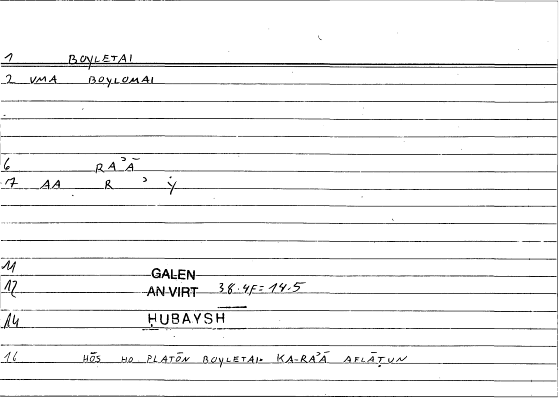 1 BOYLETAI
2 VMA BOYLOMAI
6 RAʾĀ
7 AA R ʾ Ẏ
11 GALEN
12 AN VIRT 38.4F=14.5
14 ḤUBAYSH
16 HŌS HO PLATŌN BOYLETAI· KA-RAʾĀ AFLĀṬUN